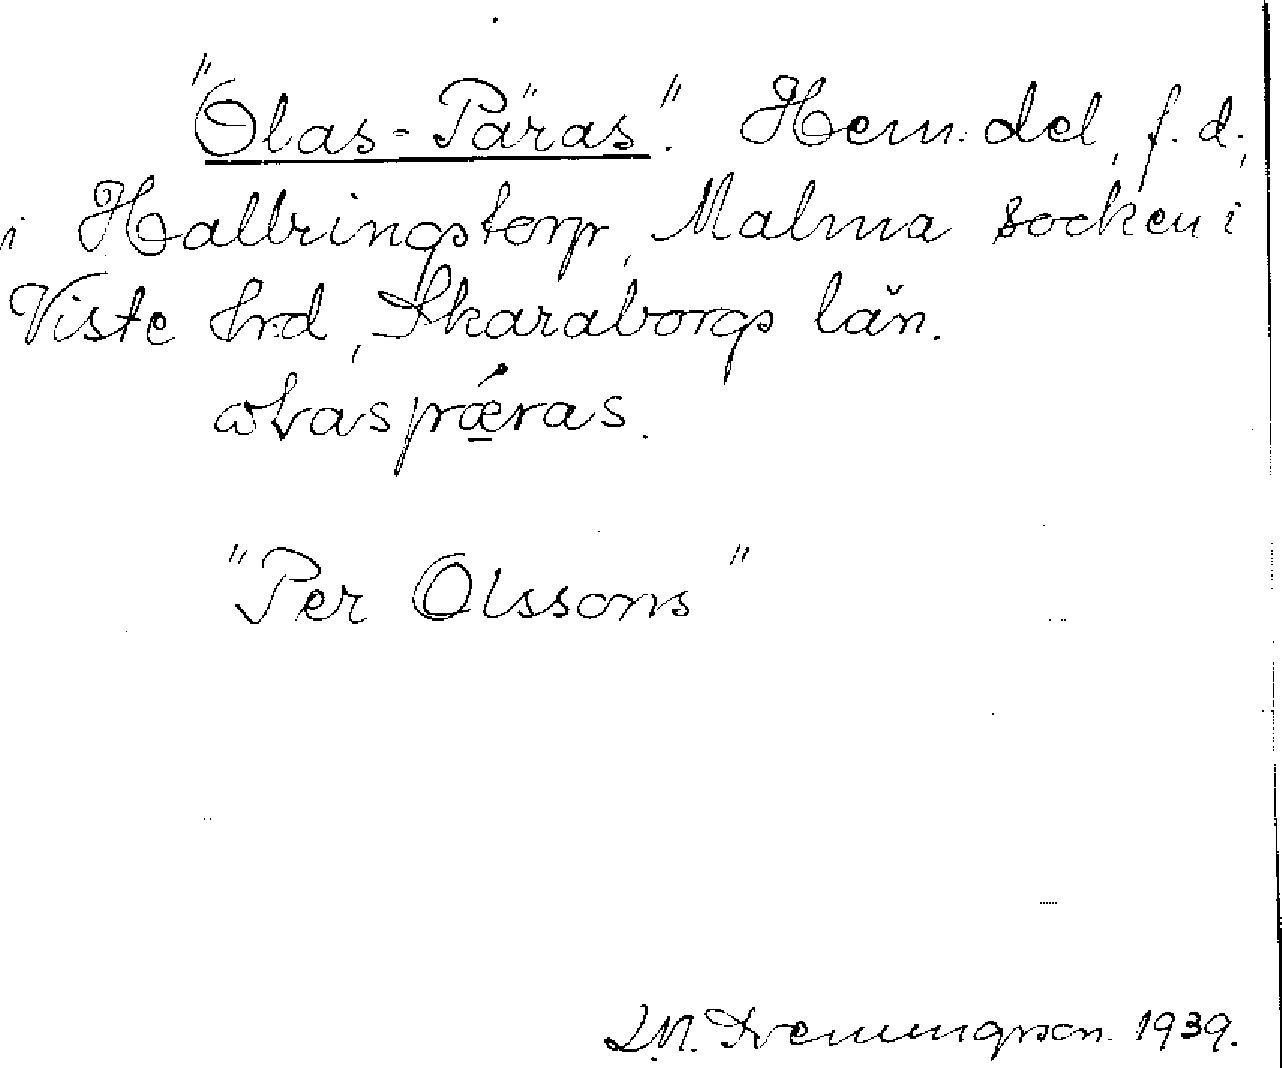 "Olas-Päras". Hem.del, f.d.,
i Hallringstorp, Malma socken i
Viste hrd, Skaraborgs län.
ωɫaspǽras.
"Per Olssons"
1939.